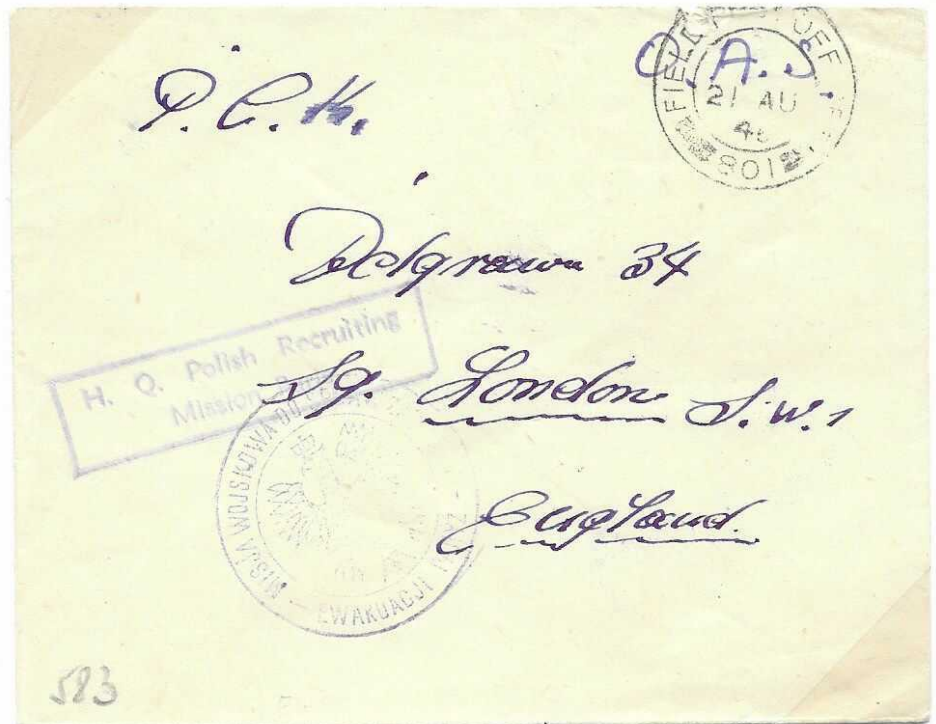 O.A.S.
FIELD POST OFFICE
21 AU
45
801
P.C.K.
Belgrave 34
Sq. London S.W.1
England
H. Q. Polish Recruiting
Mission
MISJA WOJSKOWA DO
EWAKUACJI
583